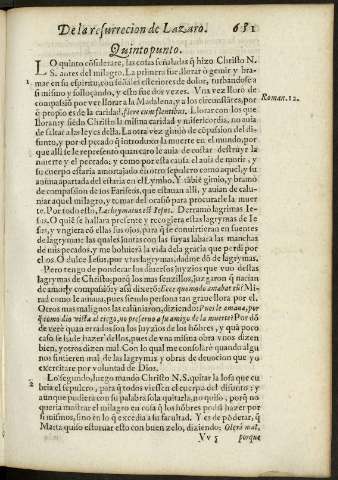 De la resurrecion de Lazaro. 651
Quinto punto.
LO quinto cõsiderare, las cosas señaladas q̃ hizo Christo N.
S. antes del milagro. La primera fue llorar ò gemir y bra-
mar en su espiritu, con señales esteriores de dolor, turbandose a
si mismo y sollozando, y esto fue dos vezes. Vna vez llorò de
compasiõ por ver llorar a la Madalena, y a los circunstãtes, por
q̃ propio es de la caridad, flere cum flentibus. Llorar con los que
Roman. 12.
lloran: y siẽdo Christo la misma caridad y misericordia, no auia
de faltar a las leyes della. La otra vez gimiò de cõpasion del di-
funto, y por el pecado q̃ introduxo la muerte en el mundo, por
que alli se le representò quan caro le auia de costar destruyr la
muerte y el pecado: y como por esta causa el auia de morir, y
su cuerpo estaria amortajado en otro sepulcro como aquel; y su
anima apartada del estaria en el Lymbo. Y tãbiẽ gimiò, y bramò
de compasion de los Fariseos, que estauan alli, y auian de calu-
niar aquel milagro, y tomar del ocasiõ para procurarle la muer-
te. Por todo esto, Lachrymatus est Iesus. Derramò lagrimas Ie-
sus. O quiẽ se hallara presente y recogiera estas lagrymas de Ie-
sus, y vngiera cõ ellas sus ojos, para q̃ se conuirtieran en fuentes
de lagrymas: las quales juntas con las suyas labara las manchas
de mis pecados, y me boluiera la vida de la gracia que perdi por
ellos. O dulce Iesus, por vuestras lagrymas, dadme dõ de lagrymas.
Pero tengo de ponderar los diuersos juyzios que vuo destas
lagrymas de Christo; porq̃ los mas senzillos, juzgaron q̃ nacian
de amor y compasiõ: y assi dixerõ: Ecce quomodo amabat eũ: Mi-
rad como le amaua, pues siendo persona tan graue llora por el.
Otros mas malignos las calũniaron, diziendo: Pues le amaua, por
que como dio vista al ciego, no preseruò a su amigo de la muerte? Por dõ
de verè quan errados son los juyzios de los hõbres, y quã poco
caso se ha de hazer dellos, pues de vna misma obra vnos dizen
bien, y otros dizen mal. Con lo qual me consolarè quando algu-
nos sintieren mal de las lagrymas y obras de deuocion que yo
exercitare por voluntad de Dios.
Lo segundo, luego mandò Christo N. S. quitar la losa que cu
bria el sepulcro, para q̃ todos viessẽ el cuerpo del difunto: y
aunque pudiera con su palabra sola quitarla, no quiso, porq̃ no
queria mostrar el milagro en cosa q̃ los hõbres podiã hazer por
si mismos, sino en lo q̃ excedia a su facultad. Y es de põderar, q̃
Marta quiso estoruar esto con buen zelo, diziendo: Olerà mal,
Vv 5 porque